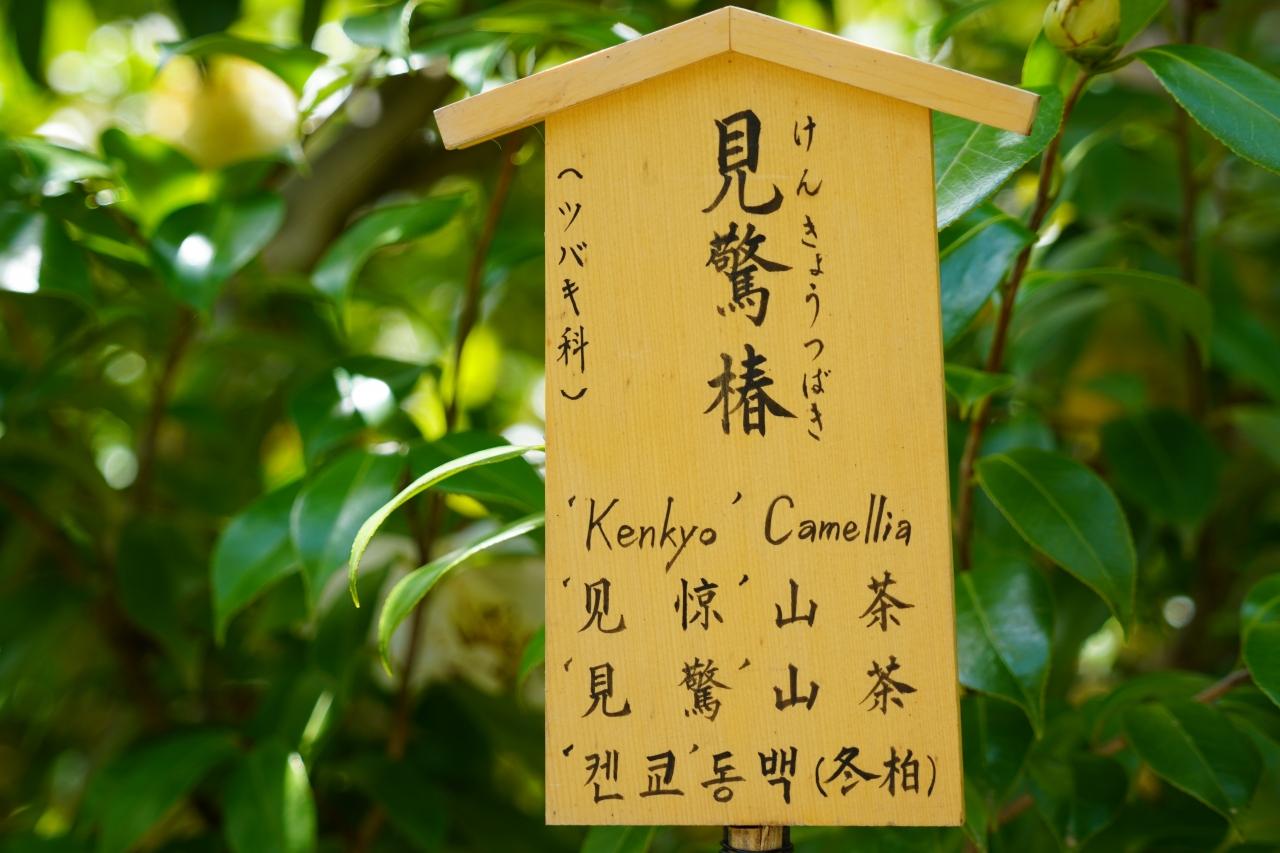 けんきょうつばき
見驚椿
（ツバキ科）
'Kenkyo' Camellia
'见惊'山茶
'見驚'山茶
'켄쿄'동백(冬柏)